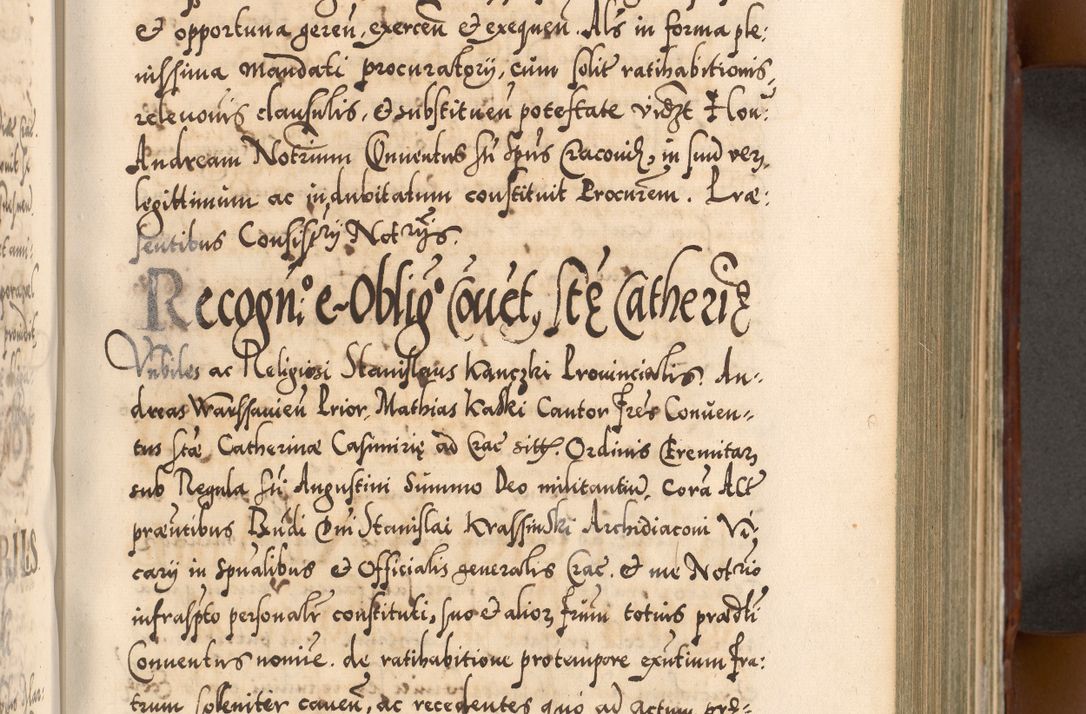 & opportuna gereñ, exerceñ & exequeñ. Als in forma ple:
nissima Mandati procuratorÿ, cum solit ratihabitionis,
relevonis clausulis, & substitueñ potestate vidzt Hon:
Andream Notrium Conventus Sti Spus Cracovieñ, in suũ ver,
legittimum ac indubitatum constituit Procurem. Præ:
sentibus Consistrÿ Notrÿs.
Recogn: e Oblig Covet, Ste Catherię
Vnbiles ac Religiosi Stanislaus Kanczki Provincialis. An=
dreas Warssavieñ Prior, Mathias Kaski Cantor Fres Conven=
tus Stæ Catherinæ Casimirię ad Crac sitt. Ordinis Eremitarʒ
sub Regula Sti Augustini Summo Deo militantiũ, Corã Act
præntibus Rñdi Dni Stanislai Krassinski Archidiaconi Vi,
carÿ in spualibus & Officialis generalis Crac. & me Notrio
infraspto personalr constituti, suo & aliorʒ frum totius prædti
Conventus nomie. de ratihabitione pro tempore exntium Fra:
trum soleniter caveñ, ac recedentes quo ad actum prę=